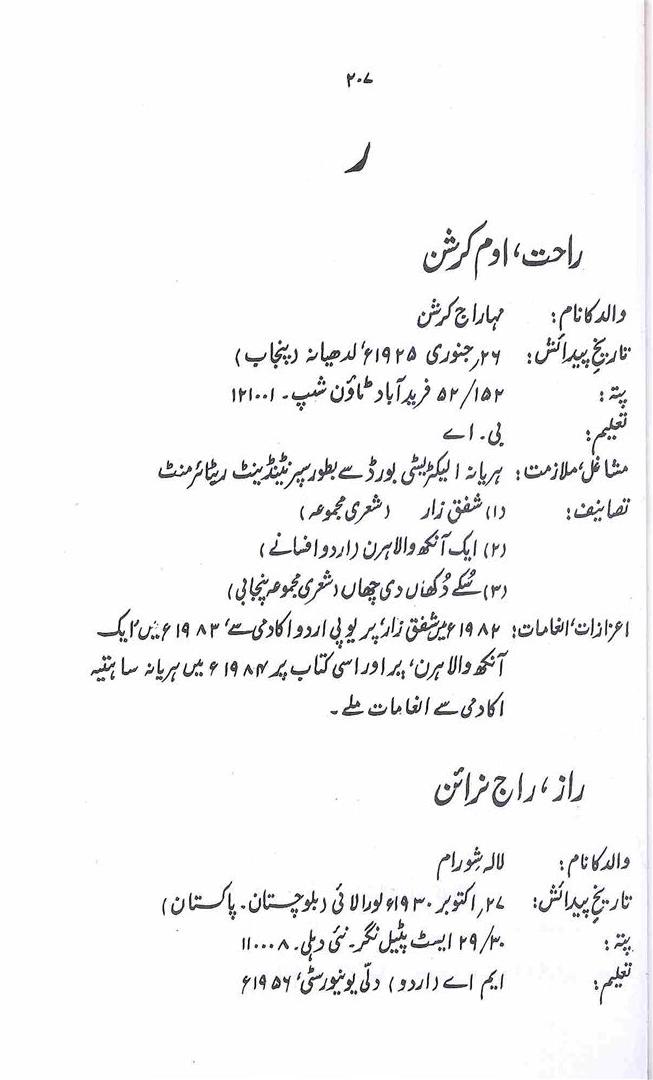 ۲۰۷
ر
راحت، اوم کرشن
والد کا نام: مہاراج کرشن
تاریخِ پیدائش: ۲۶؍جنوری ۱۹۲۵ء، لدھیانہ (پنجاب)
پتہ: ۵۲/۱۵۲ فریدآباد ٹاؤن شپ۔ ۱۲۱۰۰۱
تعلیم: بی۔ اے
مشاغل، ملازمت: ہریانہ الیکٹریسٹی بورڈ سے بطور سپرنٹینڈینٹ ریٹائرمنٹ
تصانیف: (۱) شفق زار (شعری مجموعہ)
(۲) ایک آنکھ والا ہرن (اردو افسانے)
(۳) سُکے دُکھاں دی چھاں (شعری مجموعہ پنجابی)
اعزازات، انعامات: ۱۹۸۲ء میں شفق زار، پر یو پی اردو اکادمی سے، ۱۹۸۳ء میں 'ایک
آنکھ والا ہرن، پر اور اسی کتاب پر ۱۹۸۴ء میں ہریانہ ساہتیہ
اکادمی سے انعامات ملے۔
راز، راج نرائن
والد کا نام: لالہ شِورام
تاریخِ پیدائش: ۲۷؍اکتوبر ۱۹۳۰ء لورالائی (بلوچستان۔ پاکستان)
پتہ: ۲۹/۳۰ ایسٹ پٹیل نگر۔ نئی دہلی۔ ۱۱۰۰۰۸
تعلیم: ایم اے (اردو) دلّی یونیورسٹی، ۱۹۵۶ء